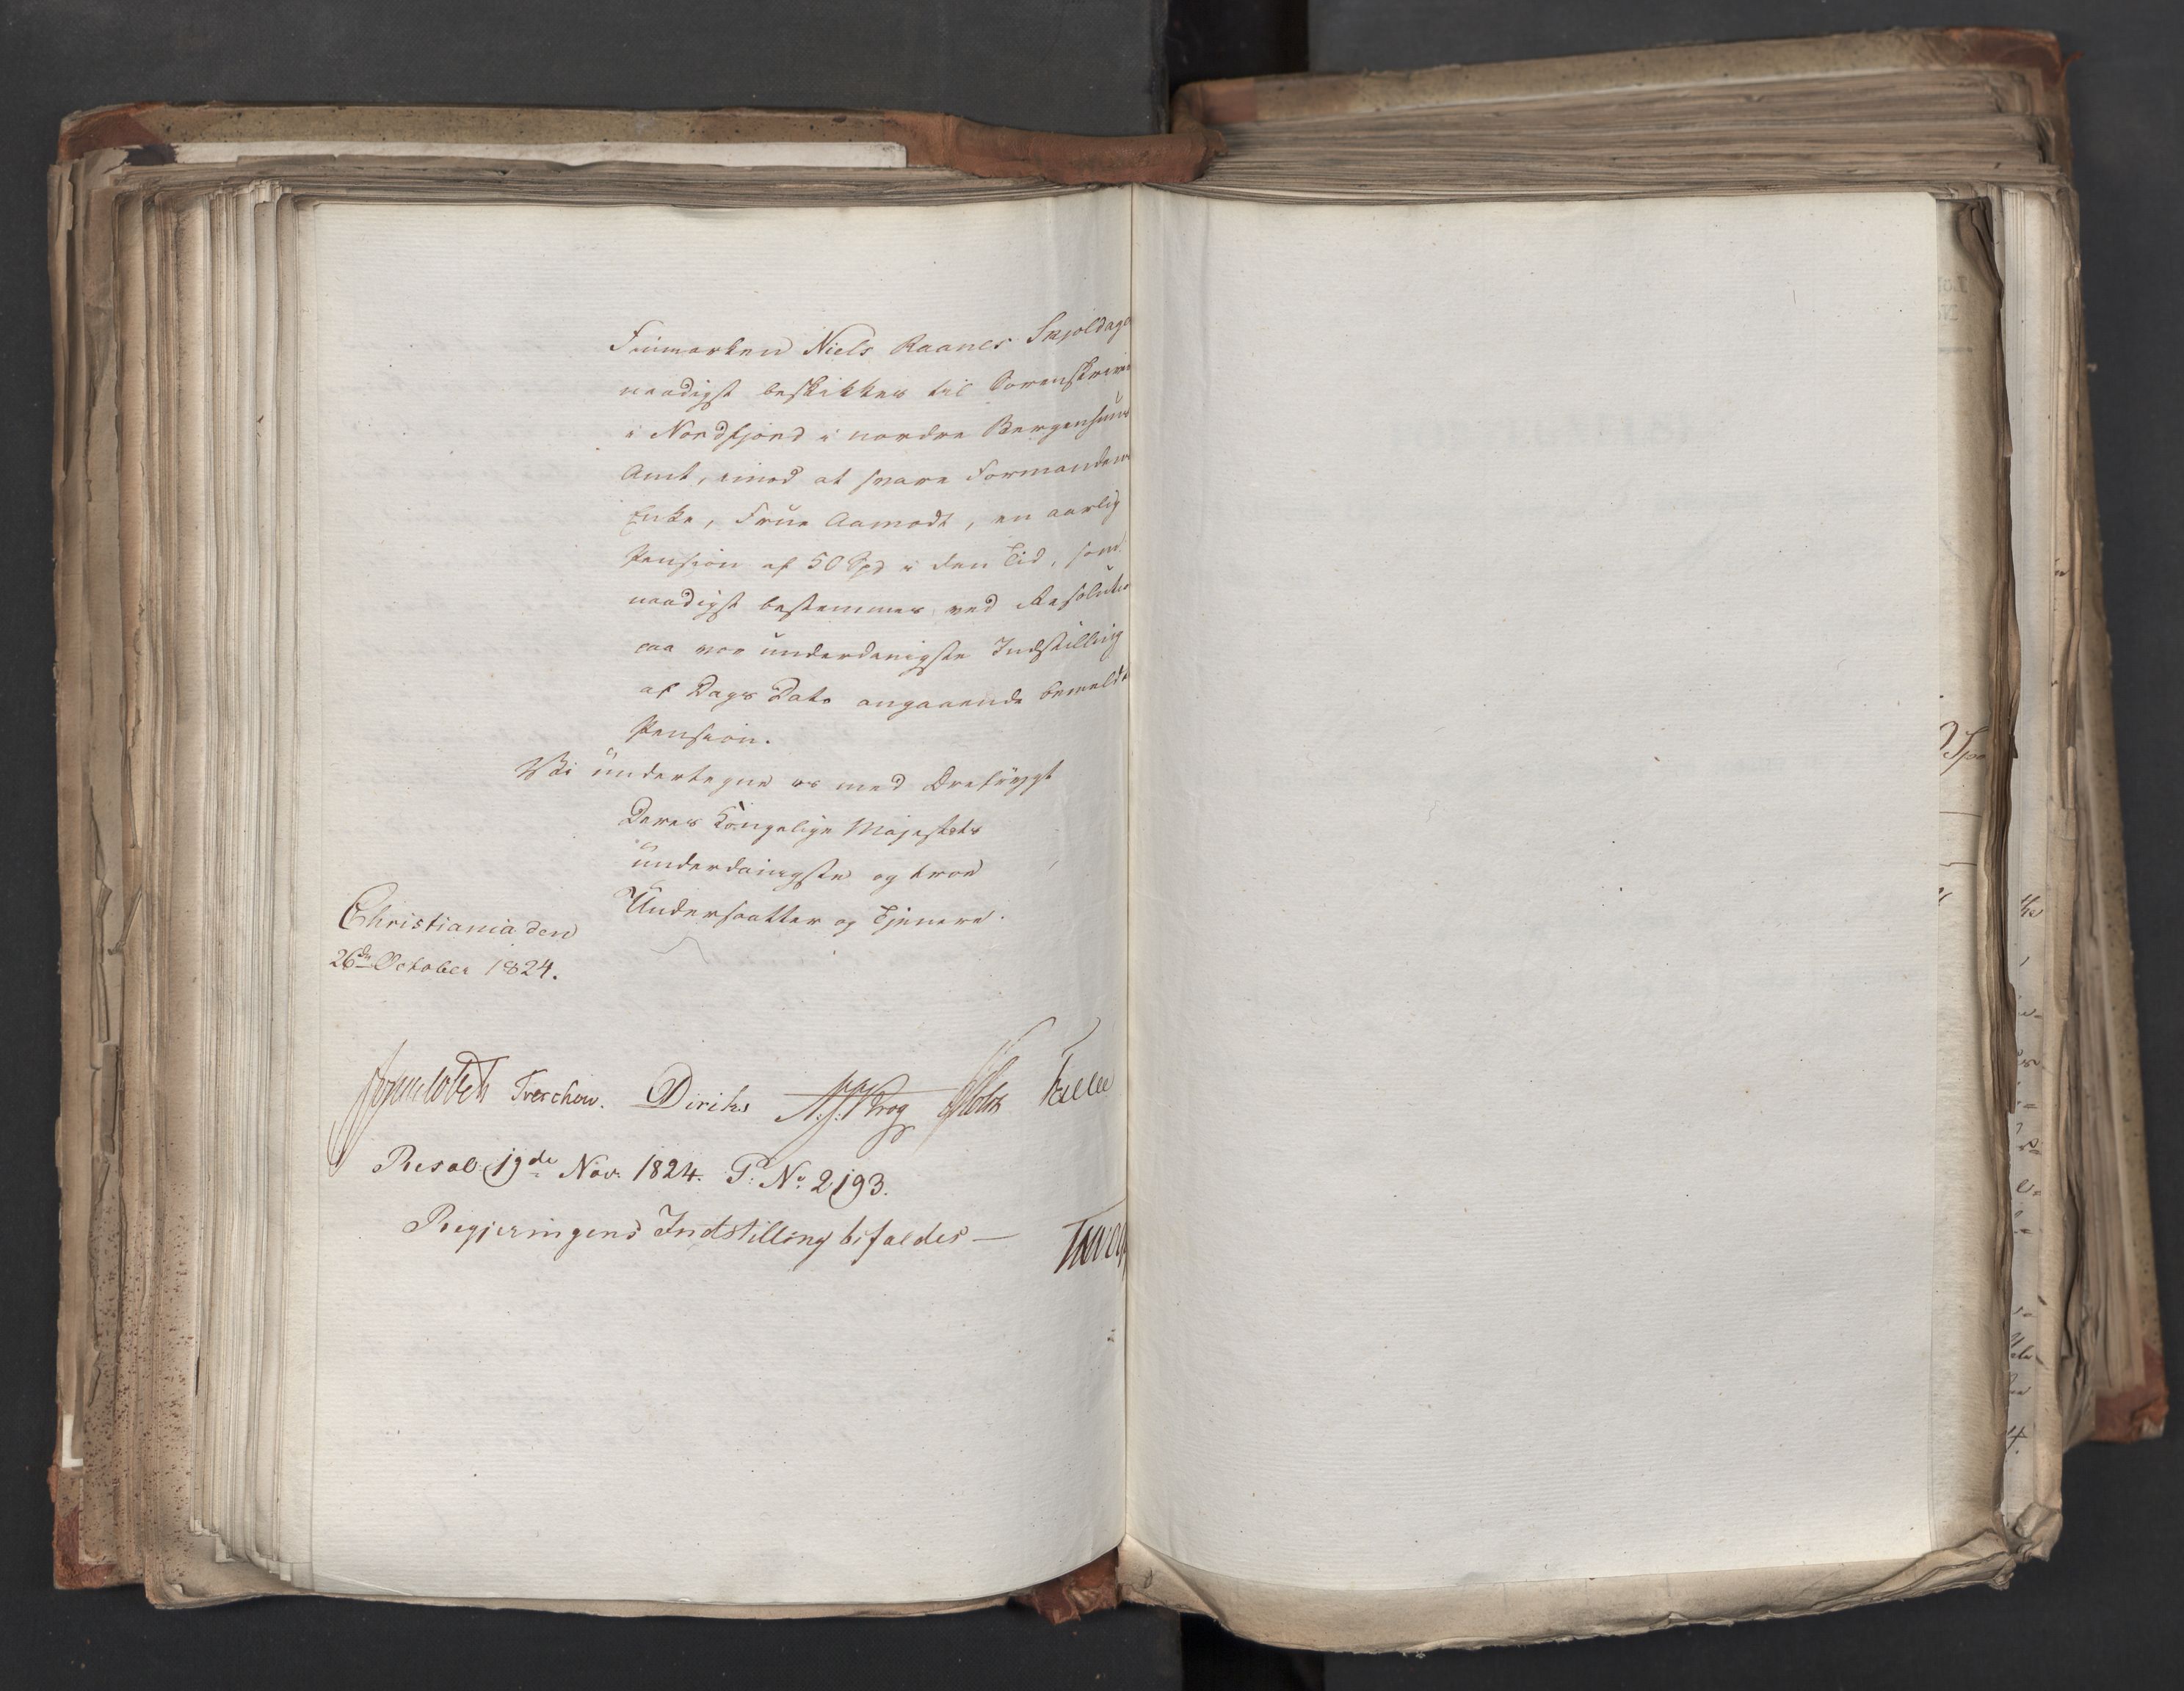 Finmarken Niels Raanes Skjoldager
naadigst beskikkes til Sorenskriver
i Nordfjord i nordre Bergenhuus
Amt, imod at svare Formandens
Enke, Frue Aamodt, en aarlig
Pension af 50 Spd i den Tid, som
naadigst bestemmes ved Resolution
paa vor underdanigste Indstilling
af Dags Dato angaaende bemeldte
Pension.
Vi undertegne os med Ærefrygt
Deres Kongelige Majestæts
underdanigste og troe
Undersaatter og Tjenere.
Christiania den
26de October 1824.
Sommerhielm Treschow. Diriks A. J. Krog Holst Fasting
Resol: 19de Nov. 1824. P: No 2193.
Regjeringens Indstilling bifaldes —